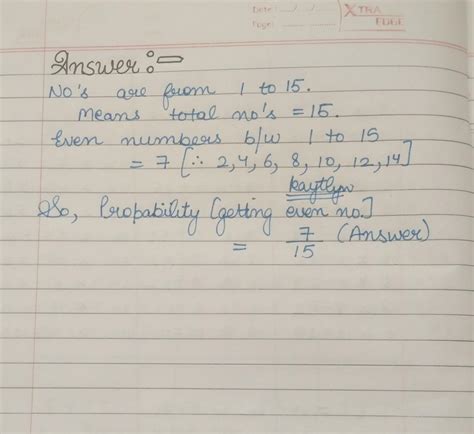 Date: __/__/__
Page:
XTRA
EDGE
Answer:-
No's are from 1 to 15.
Means total no's = 15.
Even numbers b/w 1 to 15
= 7 [∴ 2,4,6, 8, 10, 12, 14]
kaytlyn
So, Propability [getting even no.]
= 7/15 (Answer)